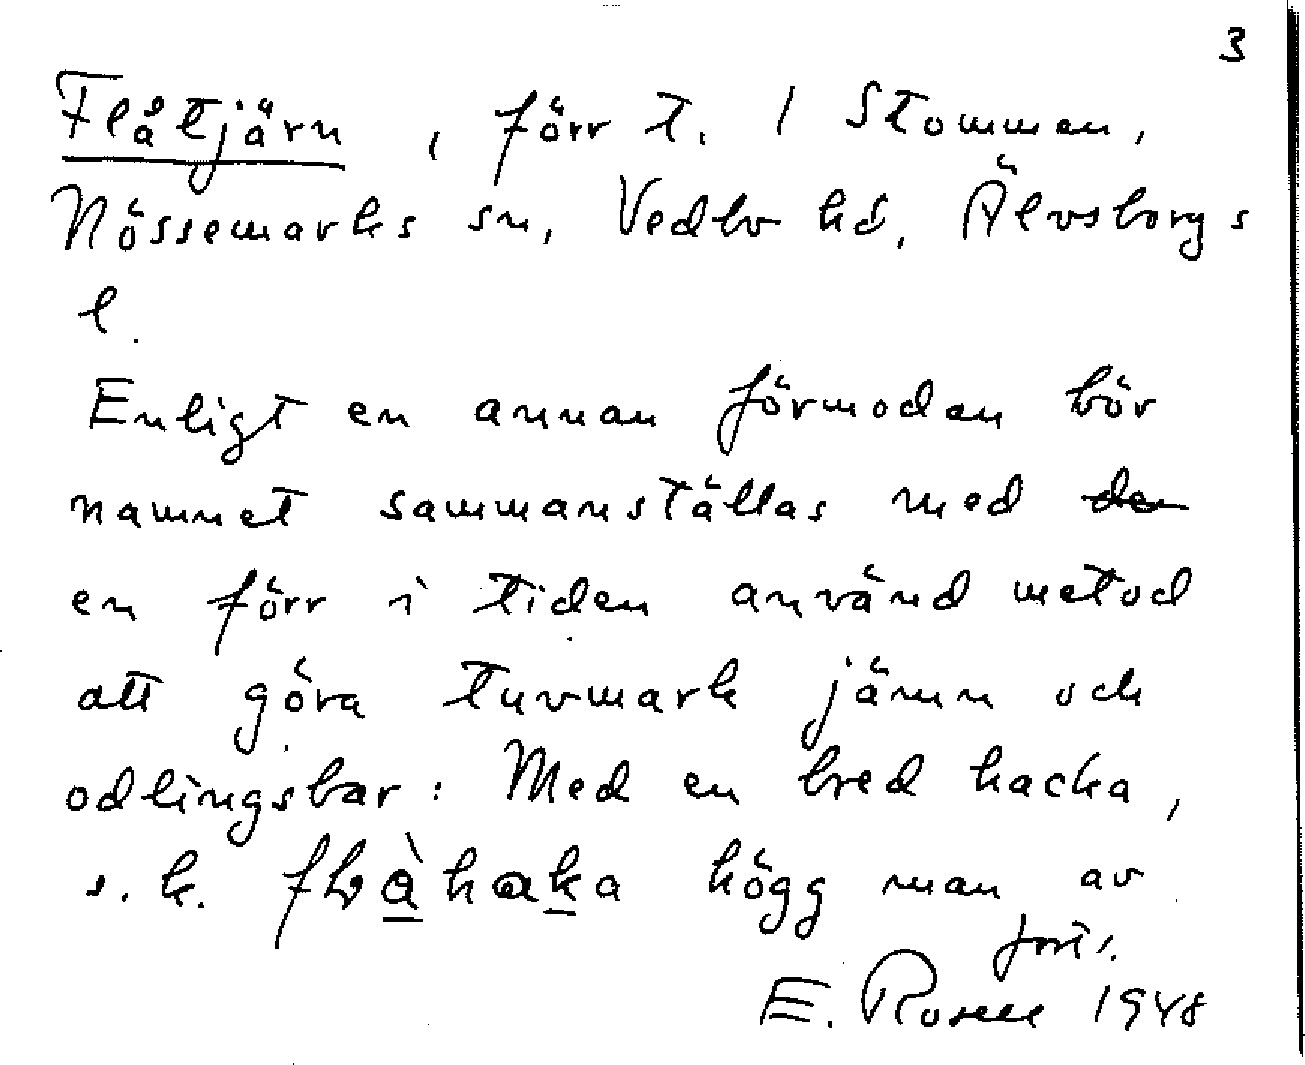 3
Flåtjärn, förr t. / Stommen,
Nössemarks sn, Vedbo hd, Älvsborgs
l.
Enligt en annan förmodan bör
namnet sammanställas med den
en förr i tiden använd metod
att göra tuvmark jämn och
odlingsbar: Med en bred hacka,
s.k. flɷ̀haka högg man av
forts.
E. Rosell 1948